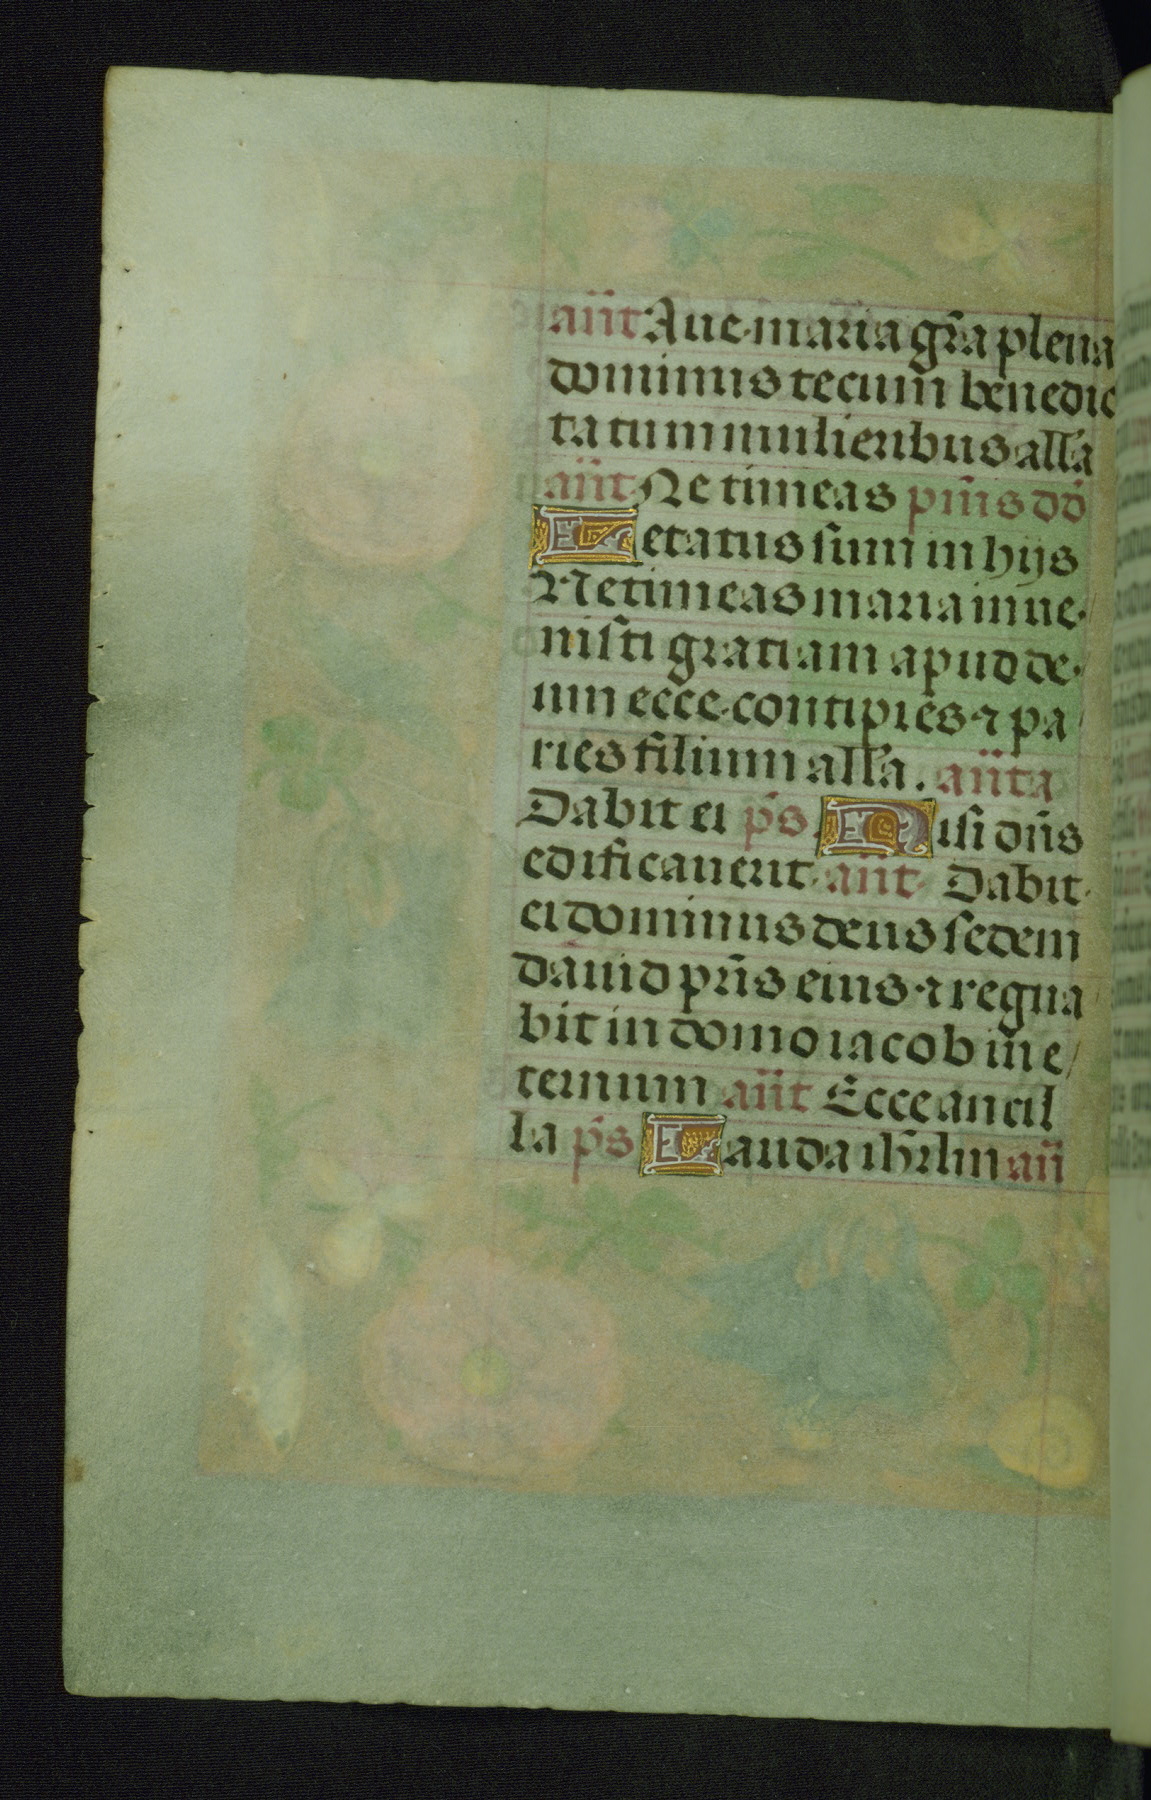 añt Aue maria gr̃a plena
dominus tecum benedic
ta tu in mulieribus alla
añt Ne timeas pm̃is dd̃
Letatus sum in hijs
Ne timeas maria inue
nisti gratiam apud de
um ecce contipies ⁊ pa
ries filium alla. añta
Dabit ei ps̃ Nisi dñs
edificauerit añt Dabit
ei dominus deus sedem
dauid pr̃is eius ⁊ regna
bit in domo iacob in e
ternum añt Ecce ancil
la ps̃ Lauda ihr̃lm añ